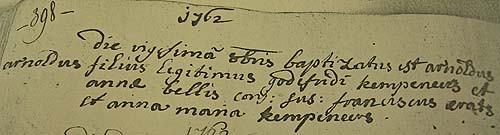 -398-
1762
die vigesimâ 8bris baptizatus est arnoldus
arnoldus filius legitimus godefridi kempeneers et
annæ bellis conj: sus: franciscus
et anna maria kempeneers